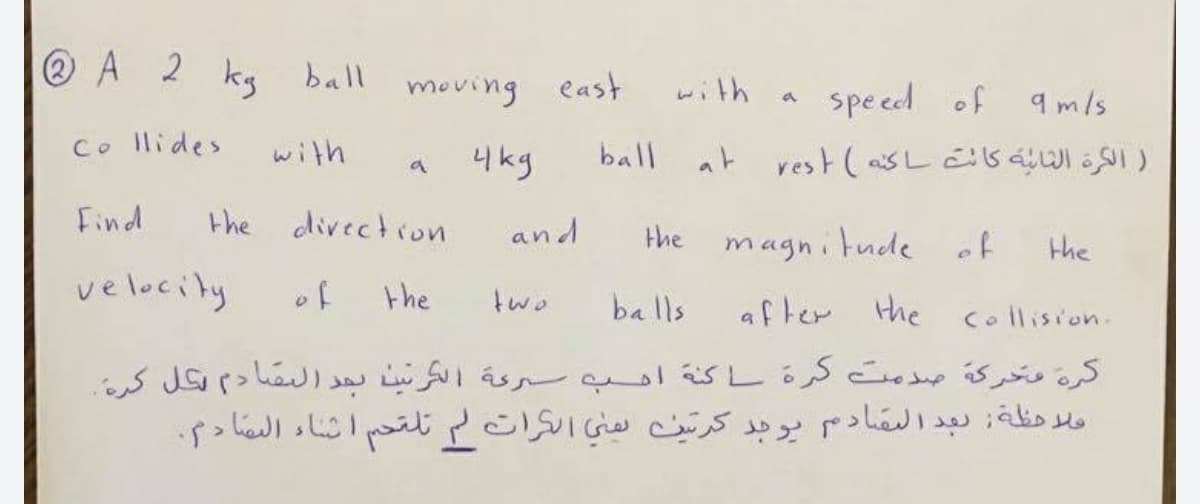 ② A 2 kg ball moving east with a speed of 9 m/s
collides with a 4kg ball at rest ( الكرة الثانية كانت ساكنه )
Find the direction and the magnitude of the
velocity of the two balls after the collision.
كرة متحركة صدمت كرة ساكنة احسب سرعة الكرتين بعد التصادم لكل كرة.
ملاحظة: بعد التصادم يوجد كرتين يعني الكرات لم تلتحم اثناء التصادم.